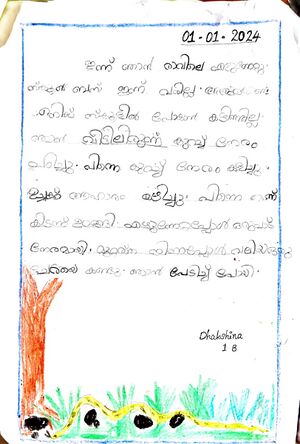 01-01-2024
ഇന്ന് ഞാൻ രാവിലെ എഴുന്നേറ്റു.
സ്കൂൾ ബസ് ഇന്ന് വന്നില്ല.
സ്കൂളിൽ പോകാൻ കഴിഞ്ഞില്ല.
ഞാൻ വീട്ടിലിരുന്ന് കുറച്ച് നേരം
പഠിച്ചു. പിന്നെ കുറച്ച് നേരം കളിച്ചു.
ഉച്ചക്ക് ആഹാരം കഴിച്ചു. പിന്നെ
കിടന്ന് ഉറങ്ങി. എഴുന്നേറ്റപ്പോൾ ഒരുപാട്
നേരമായി. മുറ്റത്ത് നിന്നപ്പോൾ വലിയൊരു
ചേരയെ കണ്ടു. ഞാൻ പേടിച്ച് പോയി.
Dhakshina
1 B